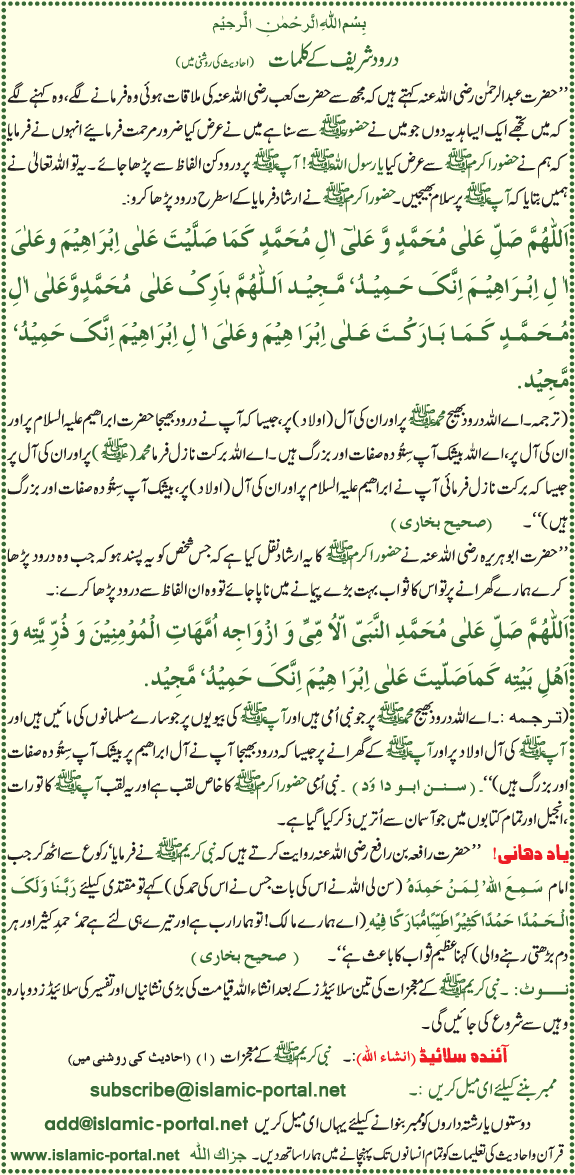 بِسْمِ اللهِ الرَّحْمٰنِ الرَّحِیْمِ
درود شریف کے کلمات (احادیث کی روشنی میں)
’’حضرت عبدالرحمٰن رضی اللہ عنہ کہتے ہیں کہ مجھ سے حضرت کعب رضی اللہ عنہ کی ملاقات ہوئی وہ فرمانے لگے، وہ کہنے لگے
کہ میں تجھے ایک ایسا ہدیہ دوں جو میں نے حضور ﷺ سے سنا ہے میں نے عرض کیا ضرور مرحمت فرمایئے انہوں نے فرمایا
کہ ہم نے حضور اکرم ﷺ سے عرض کیا یا رسول اللہ ﷺ! آپ ﷺ پر درود کن الفاظ سے پڑھا جائے۔ یہ تو اللہ تعالیٰ نے
ہمیں بتایا کہ آپ ﷺ پر سلام بھیجیں۔ حضور اکرم ﷺ نے ارشاد فرمایا کے اسطرح درود پڑھا کرو:۔
اَللّٰهُمَّ صَلِّ عَلٰی مُحَمَّدٍ وَّ عَلٰیٓ اٰلِ مُحَمَّدٍ کَمَا صَلَّیْتَ عَلٰی اِبْرَاهِیْمَ وعَلیٰ
اٰ لِ اِبْرَاهِیْمَ اِنَّکَ حَمِیْدُ، مَّجِیْد اَللّٰهُمَّ بَارِکْ عَلٰی مُحَمَّدٍ وَّعَلٰی اٰلِ
مُحَمَّدٍ کَمَا بَارَکْتَ عَلٰی اِبْرَا هِیْمَ وَعَلیٰ اٰ لِ اِبْرَاهِیْمَ اِنَّکَ حَمِیْدُ،
مَّجِیْد.
(ترجمہ۔ اے اللہ درود بھیج محمد ﷺ پر اور ان کی آل (اولاد) پر، جیسا کہ آپ نے درود بھیجا حضرت ابراھیم علیہ السلام پر اور
ان کی آل پر، اے اللہ بیشک آپ سِتُودہ صفات اور بزرگ ہیں ۔ اے اللہ برکت نازل فرما محمد (ﷺ) پر اور ان کی آل پر
جیسا کہ برکت نازل فرمائی آپ نے ابراھیم علیہ السلام پر اور ان کی آل (اولاد) پر، بیشک آپ سِتُودہ صفات اور بزرگ
ہیں)‘‘۔ (صحیح بخاری)
’’حضرت ابو ہریرہ رضی اللہ عنہ نے حضور اکرم ﷺ کا یہ ارشاد نقل کیا ہے کہ جس شخص کو یہ پسند ہو کہ جب وہ درود پڑھا
کرے ہمارے گھرانے پر تو اس کا ثواب بہت بڑے پیمانے میں ناپا جائے تو وہ ان الفاظ سے درود پڑھا کرے:۔
اَللّٰهُمَّ صَلِّ عَلٰی مُحَمَّدِ النَّبِیِّ الْاُ مِّیِّ وَ اَزْوَاجِه اُمَّهَاتِ الْمُؤْمِنِیْنَ وَ ذُرِّ یَّتِه وَ
اَهْلِ بَیْتِه کَماَصَلّیتَ عَلٰی اِبْرَا هِیْمَ اِنَّکَ حَمِیْدُ، مَّجِیْد.
(ترجمه :۔اے اللہ درود بھیج محمد ﷺ پر جو نبی اُمی ہیں اور آپ ﷺ کی بیویوں پر جو سارے مسلمانوں کی مائیں ہیں اور
آپ ﷺ کی آل اولاد پر اور آپ ﷺ کے گھرانے پر جیسا کہ درود بھیجا آپ نے آل ابراھیم پر بیشک آپ سِتُودہ صفات
اور بزرگ ہیں)‘‘۔ (سنن ابو دا وٗد) ۔ نبی اُمی حضور اکرم ﷺ کا خاص لقب ہے اور یہ لقب آپ ﷺ کا تورات
،انجیل اور تمام کتابوں میں جو آسمان سے اُتریں ذکر کیا گیا ہے۔
یاد دھانی! ’’حضرت رافعہ بن رافع رضی اللہ عنہ روایت کرتے ہیں کہ نبی کریم ﷺ نے فرمایا’ رکوع سے اٹھ کر جب
امام سَمِعَ اللهُ لِمَنْ حَمِدَهُ (سن لی اللہ نے اس کی بات جس نے اس کی حمد کی) کہے تو مقتدی کیلئے رَبَّنَا وَلَکَ
الْحَمْدُا حَمْدًا کَثِیْرًا طَیِّبًا مُّبَارَکًا فِیْهِ (اے ہمارے مالک! تو ہمارا رب ہے اور تیرے ہی لئے ہے حمد‘ حمدِ کثیر اور ہر
دم بڑھتی رہنے والی) کہنا عظیم ثواب کا باعث ہے‘‘۔ ( صحیح بخاری )
نوٹ: ۔ نبی کریم ﷺ کے معجزات کی تین سلائیڈز کے بعد انشاء اللہ قیامت کی بڑی نشانیاں اور تفسیر کی سلائیڈز دوبارہ
وہیں سے شروع کی جائیں گی۔
آئندہ سلائیڈ (انشاء اللہ) :۔ نبی کریم ﷺ کے معجزات (۱) (احادیث کی روشنی میں)
ممبر بننے کیلئے ای میل کریں :۔ subscribe@islamic-portal.net
دوستوں یا رشتہ داروں کو ممبر بنوانے کیلئے یہاں ای میل کریں add@islamic-portal.net
قرآن و احادیث کی تعلیمات کو تمام انسانوں تک پہنچانے میں ہمارا ساتھ دیں۔ جزاک اللہ www.islamic-portal.net